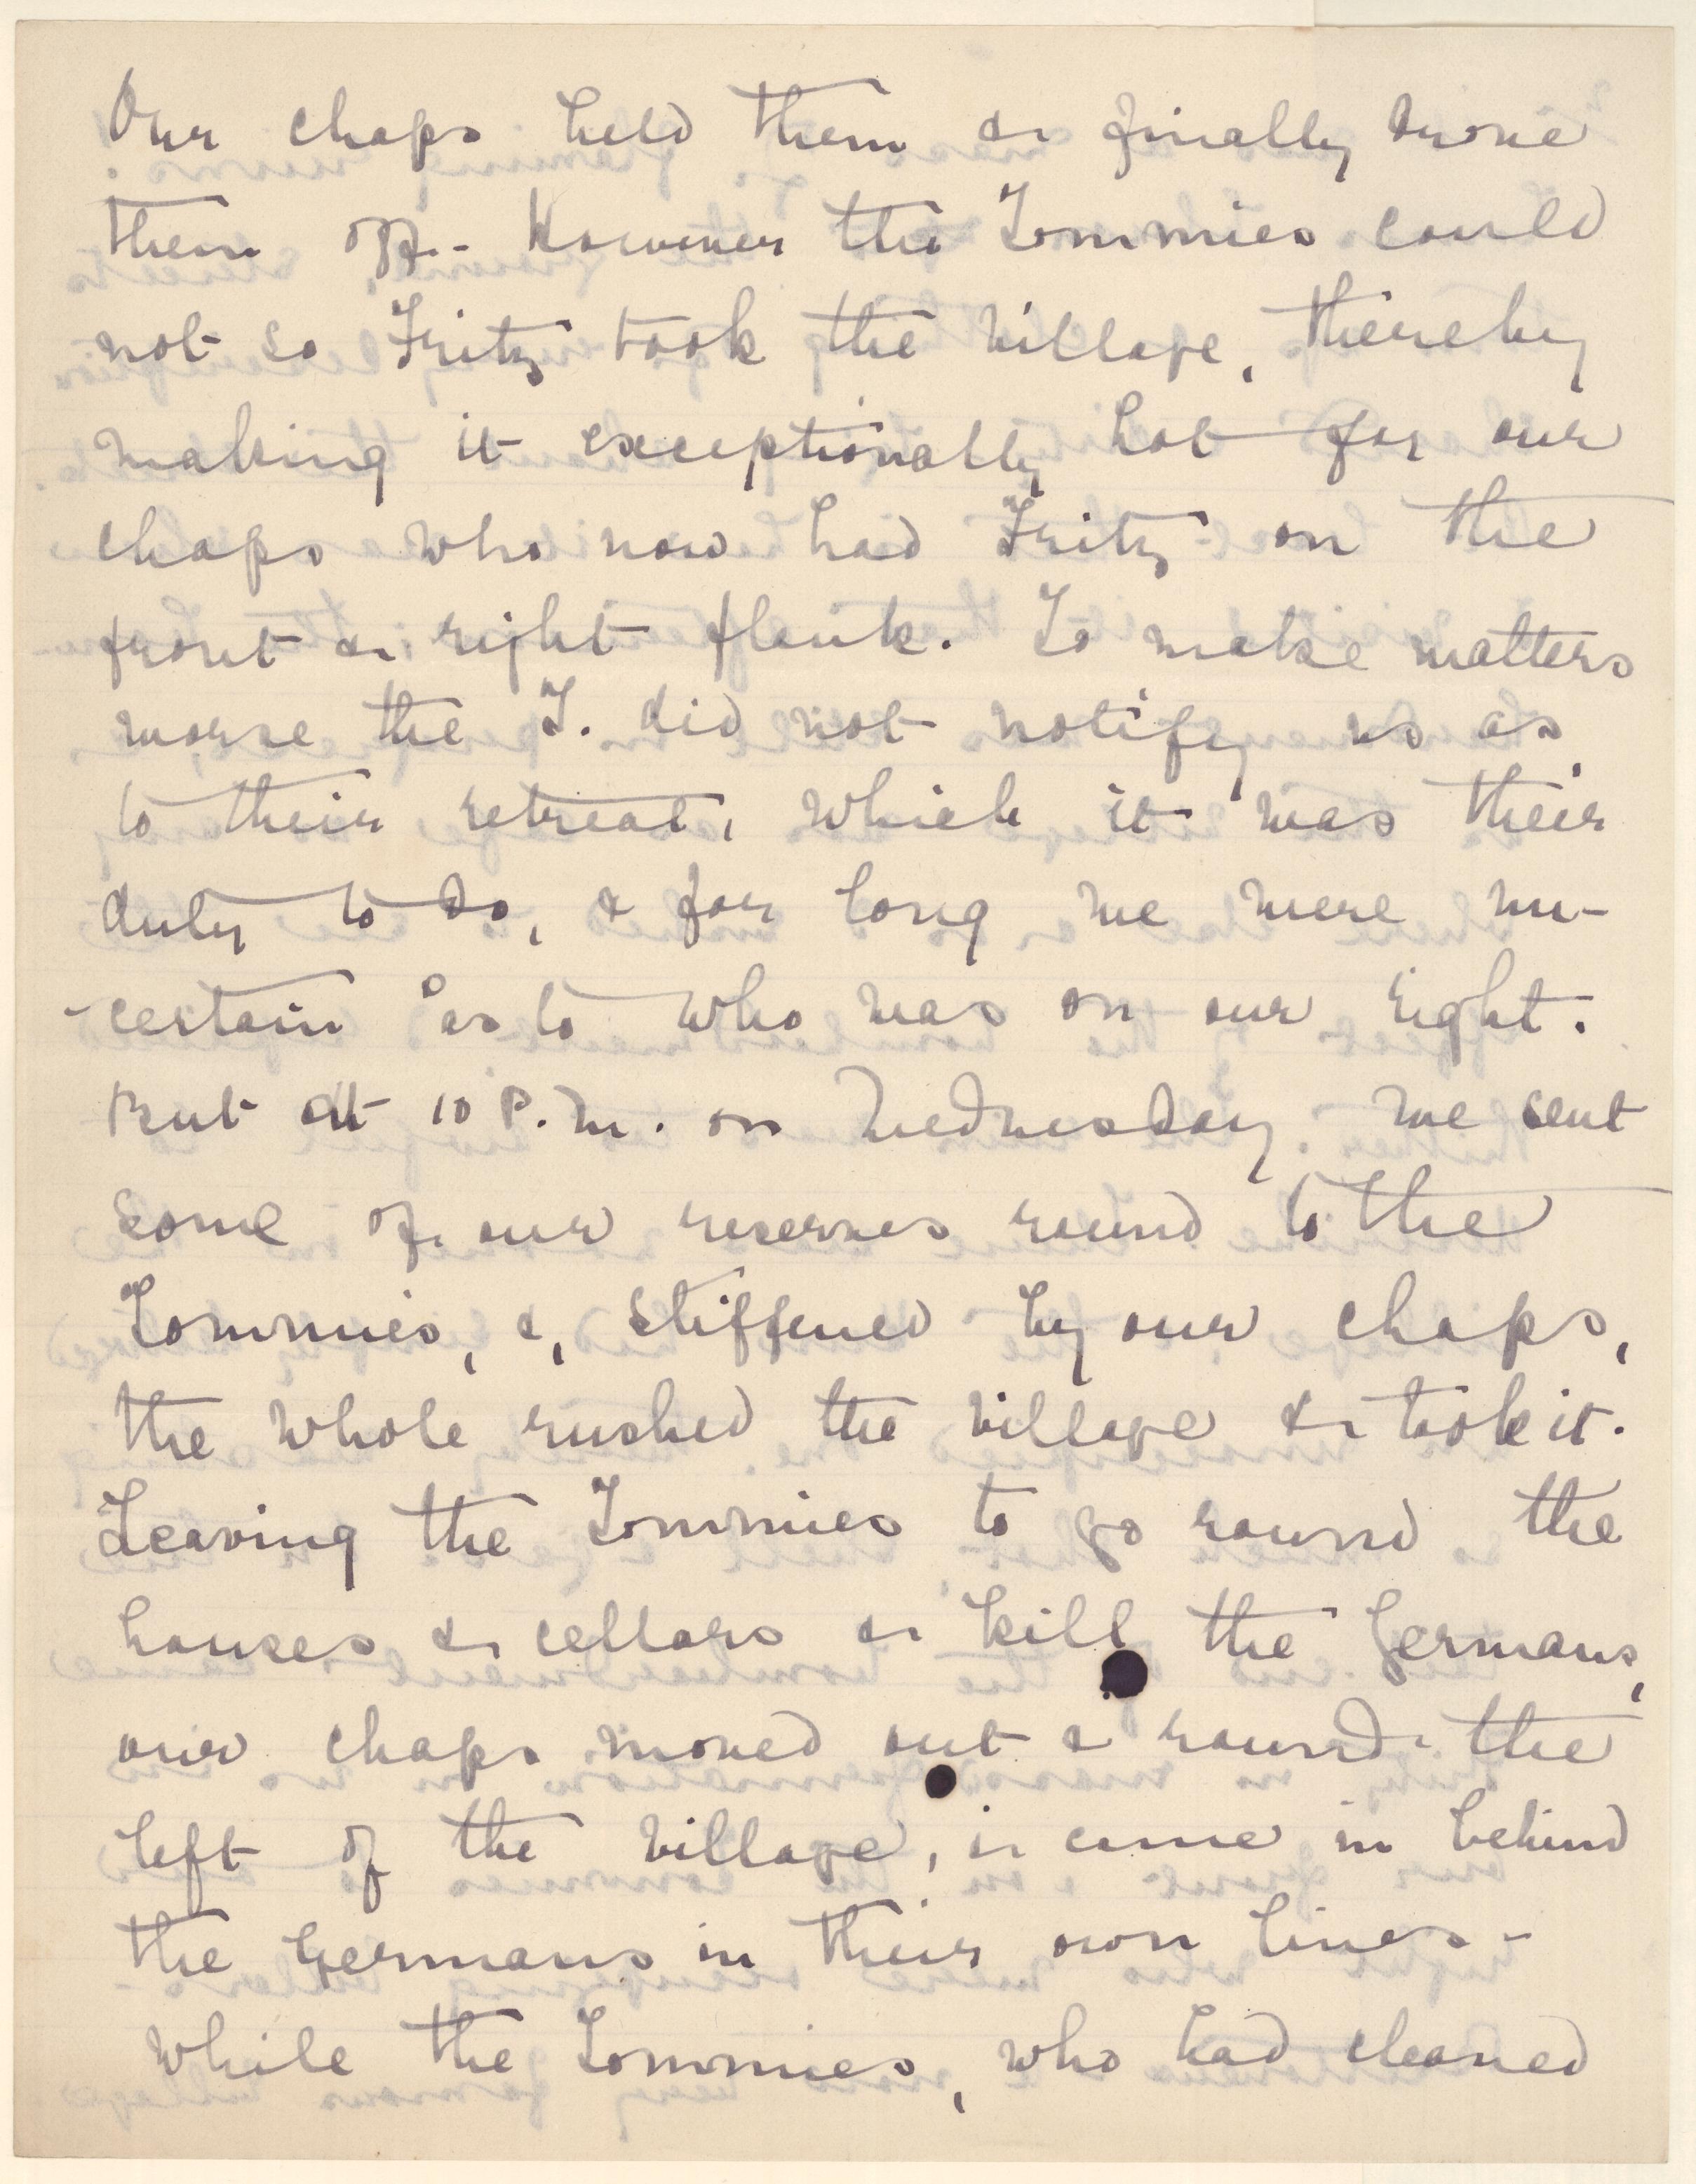 Our chaps held them & finally drove
them off. - However the Tommies could
not so Fritz took the village, thereby
making it exceptionally hot for our
chaps who now had Fritz on the
front & right flank. To make matters
worse the T. did not notify us as
to their retreat, which it was their
duty to do, & for long we were un-
-certain as to who was on our right.
But at 10 P.M. on Wednesday. we sent
some of our reserves round to the
Tommies, &, stiffened by our chaps,
the whole rushed the village & took it.
Leaving the Tommies to go round the
houses & cellars & kill the Germans,
our chaps moved out & round the
left of the village, & came in behind
the Germans in their own lines -
while the Tommies, who had cleaned